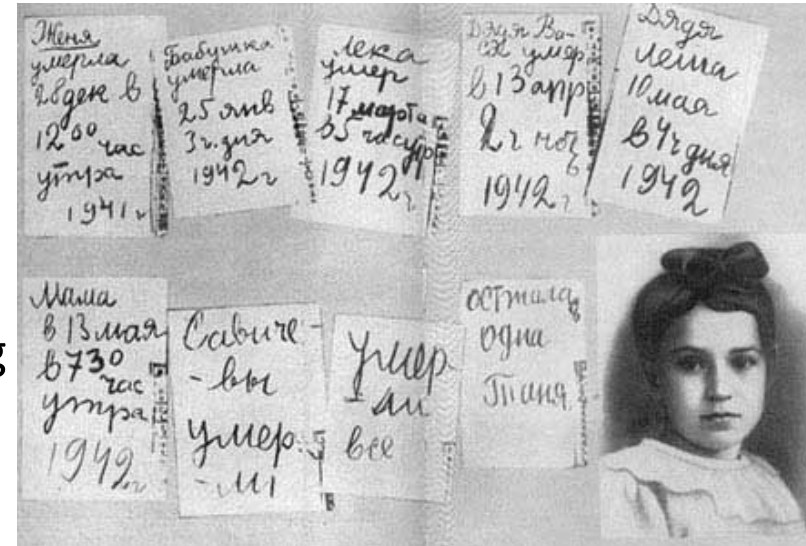 Женя
умерла
28 дек в
12 00 час
утра
1941 г
Бабушка
умерла
25 янв
3 ч. дня
1942 г
Лека
умер
17 марта
в 5 час утр
1942 г
Дядя Ва-
ся умер
в 13 апр
2 ч ночь
1942 г
Дядя
Леша
10 мая
в 4 ч дня
1942
Мама
в 13 мая
в 730
час
утра
1942 г
Савиче-
-вы
умер
-ли
умер
-ли
все
осталась
одна
Таня
g